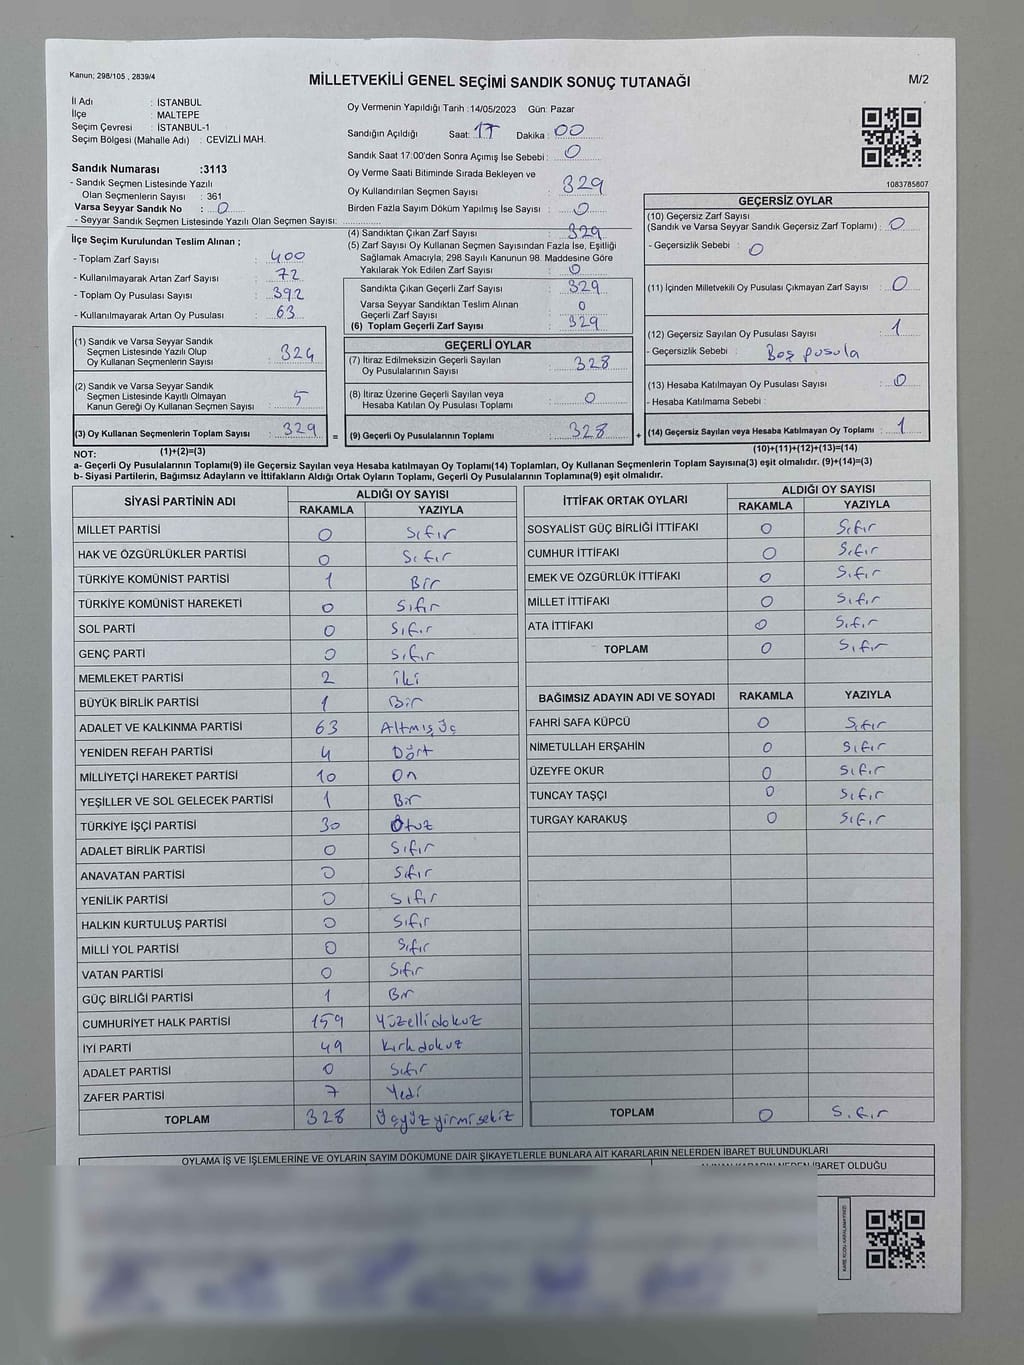 Kanun; 298/105 , 2839/4
MİLLETVEKİLİ GENEL SEÇİMİ SANDIK SONUÇ TUTANAĞI
M/2
İl Adı : İSTANBUL
İlçe : MALTEPE
Seçim Çevresi : İSTANBUL-1
Seçim Bölgesi (Mahalle Adı) : CEVİZLİ MAH.
Sandık Numarası :3113
- Sandık Seçmen Listesinde Yazılı
Olan Seçmenlerin Sayısı : 361
Varsa Seyyar Sandık No : 0
- Seyyar Sandık Seçmen Listesinde Yazılı Olan Seçmen Sayısı:
İlçe Seçim Kurulundan Teslim Alınan ;
- Toplam Zarf Sayısı : 400
- Kullanılmayarak Artan Zarf Sayısı : 72
- Toplam Oy Pusulası Sayısı : 392
- Kullanılmayarak Artan Oy Pusulası : 63
(1) Sandık ve Varsa Seyyar Sandık
Seçmen Listesinde Yazılı Olup
Oy Kullanan Seçmenlerin Sayısı : 324
(2) Sandık ve Varsa Seyyar Sandık
Seçmen Listesinde Kayıtlı Olmayan
Kanun Gereği Oy Kullanan Seçmen Sayısı : 5
(3) Oy Kullanan Seçmenlerin Toplam Sayısı : 329
(1)+(2)=(3)
Oy Vermenin Yapıldığı Tarih :14/05/2023 Gün: Pazar
Sandığın Açıldığı Saat: 17 Dakika : 00
Sandık Saat 17:00'den Sonra Açımış İse Sebebi : 0
Oy Verme Saati Bitiminde Sırada Bekleyen ve
Oy Kullandırılan Seçmen Sayısı : 329
Birden Fazla Sayım Döküm Yapılmış İse Sayısı : 0
(4) Sandıktan Çıkan Zarf Sayısı : 329
(5) Zarf Sayısı Oy Kullanan Seçmen Sayısından Fazla İse, Eşitliği
Sağlamak Amacıyla; 298 Sayılı Kanunun 98. Maddesine Göre
Yakılarak Yok Edilen Zarf Sayısı : 0
Sandıkta Çıkan Geçerli Zarf Sayısı : 329
Varsa Seyyar Sandıktan Teslim Alınan
Geçerli Zarf Sayısı : 0
(6) Toplam Geçerli Zarf Sayısı : 329
GEÇERLİ OYLAR
(7) İtiraz Edilmeksizin Geçerli Sayılan
Oy Pusulalarının Sayısı : 328
(8) İtiraz Üzerine Geçerli Sayılan veya
Hesaba Katılan Oy Pusulası Toplamı : 0
= (9) Geçerli Oy Pusulalarının Toplamı : 328 +
1083785807
GEÇERSİZ OYLAR
(10) Geçersiz Zarf Sayısı
(Sandık ve Varsa Seyyar Sandık Geçersiz Zarf Toplamı) : 0
- Geçersizlik Sebebi : 0
(11) İçinden Milletvekili Oy Pusulası Çıkmayan Zarf Sayısı : 0
(12) Geçersiz Sayılan Oy Pusulası Sayısı : 1
- Geçersizlik Sebebi : Boş pusula
(13) Hesaba Katılmayan Oy Pusulası Sayısı : 0
- Hesaba Katılmama Sebebi :
(14) Geçersiz Sayılan veya Hesaba Katılmayan Oy Toplamı : 1
(10)+(11)+(12)+(13)=(14)
NOT:
a- Geçerli Oy Pusulalarının Toplamı(9) ile Geçersiz Sayılan veya Hesaba katılmayan Oy Toplamı(14) Toplamları, Oy Kullanan Seçmenlerin Toplam Sayısına(3) eşit olmalıdır. (9)+(14)=(3)
b- Siyasi Partilerin, Bağımsız Adayların ve İttifakların Aldığı Ortak Oyların Toplamı, Geçerli Oy Pusulalarının Toplamına(9) eşit olmalıdır.
SİYASİ PARTİNİN ADI ALDIĞI OY SAYISI
RAKAMLA YAZIYLA
MİLLET PARTİSİ 0 Sıfır
HAK VE ÖZGÜRLÜKLER PARTİSİ 0 Sıfır
TÜRKİYE KOMÜNİST PARTİSİ 1 Bir
TÜRKİYE KOMÜNİST HAREKETİ 0 Sıfır
SOL PARTİ 0 Sıfır
GENÇ PARTİ 0 Sıfır
MEMLEKET PARTİSİ 2 İki
BÜYÜK BİRLİK PARTİSİ 1 Bir
ADALET VE KALKINMA PARTİSİ 63 Altmış Üç
YENİDEN REFAH PARTİSİ 4 Dört
MİLLİYETÇİ HAREKET PARTİSİ 10 On
YEŞİLLER VE SOL GELECEK PARTİSİ 1 Bir
TÜRKİYE İŞÇİ PARTİSİ 30 Otuz
ADALET BİRLİK PARTİSİ 0 Sıfır
ANAVATAN PARTİSİ 0 Sıfır
YENİLİK PARTİSİ 0 Sıfır
HALKIN KURTULUŞ PARTİSİ 0 Sıfır
MİLLİ YOL PARTİSİ 0 Sıfır
VATAN PARTİSİ 0 Sıfır
GÜÇ BİRLİĞİ PARTİSİ 1 Bir
CUMHURİYET HALK PARTİSİ 159 Yüzellidokuz
İYİ PARTİ 49 Kırkdokuz
ADALET PARTİSİ 0 Sıfır
ZAFER PARTİSİ 7 Yedi
TOPLAM 328 Üçyüzyirmisekiz
İTTİFAK ORTAK OYLARI ALDIĞI OY SAYISI
RAKAMLA YAZIYLA
SOSYALİST GÜÇ BİRLİĞİ İTTİFAKI 0 Sıfır
CUMHUR İTTİFAKI 0 Sıfır
EMEK VE ÖZGÜRLÜK İTTİFAKI 0 Sıfır
MİLLET İTTİFAKI 0 Sıfır
ATA İTTİFAKI 0 Sıfır
TOPLAM 0 Sıfır
BAĞIMSIZ ADAYIN ADI VE SOYADI RAKAMLA YAZIYLA
FAHRİ SAFA KÜPCÜ 0 Sıfır
NİMETULLAH ERŞAHİN 0 Sıfır
ÜZEYFE OKUR 0 Sıfır
TUNCAY TAŞÇI 0 Sıfır
TURGAY KARAKUŞ 0 Sıfır
TOPLAM 0 Sıfır
OYLAMA İŞ VE İŞLEMLERİNE VE OYLARIN SAYIM DÖKÜMÜNE DAİR ŞİKAYETLERLE BUNLARA AİT KARARLARIN NELERDEN İBARET BULUNDUKLARI
ALINAN KARARIN NEDEN İBARET OLDUĞU